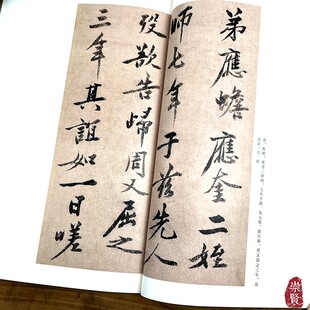 弟應蟾應奎二姪
師七年于茲先人
歿欲告歸周又屈之
三年其誼如一日嗟
崇賢